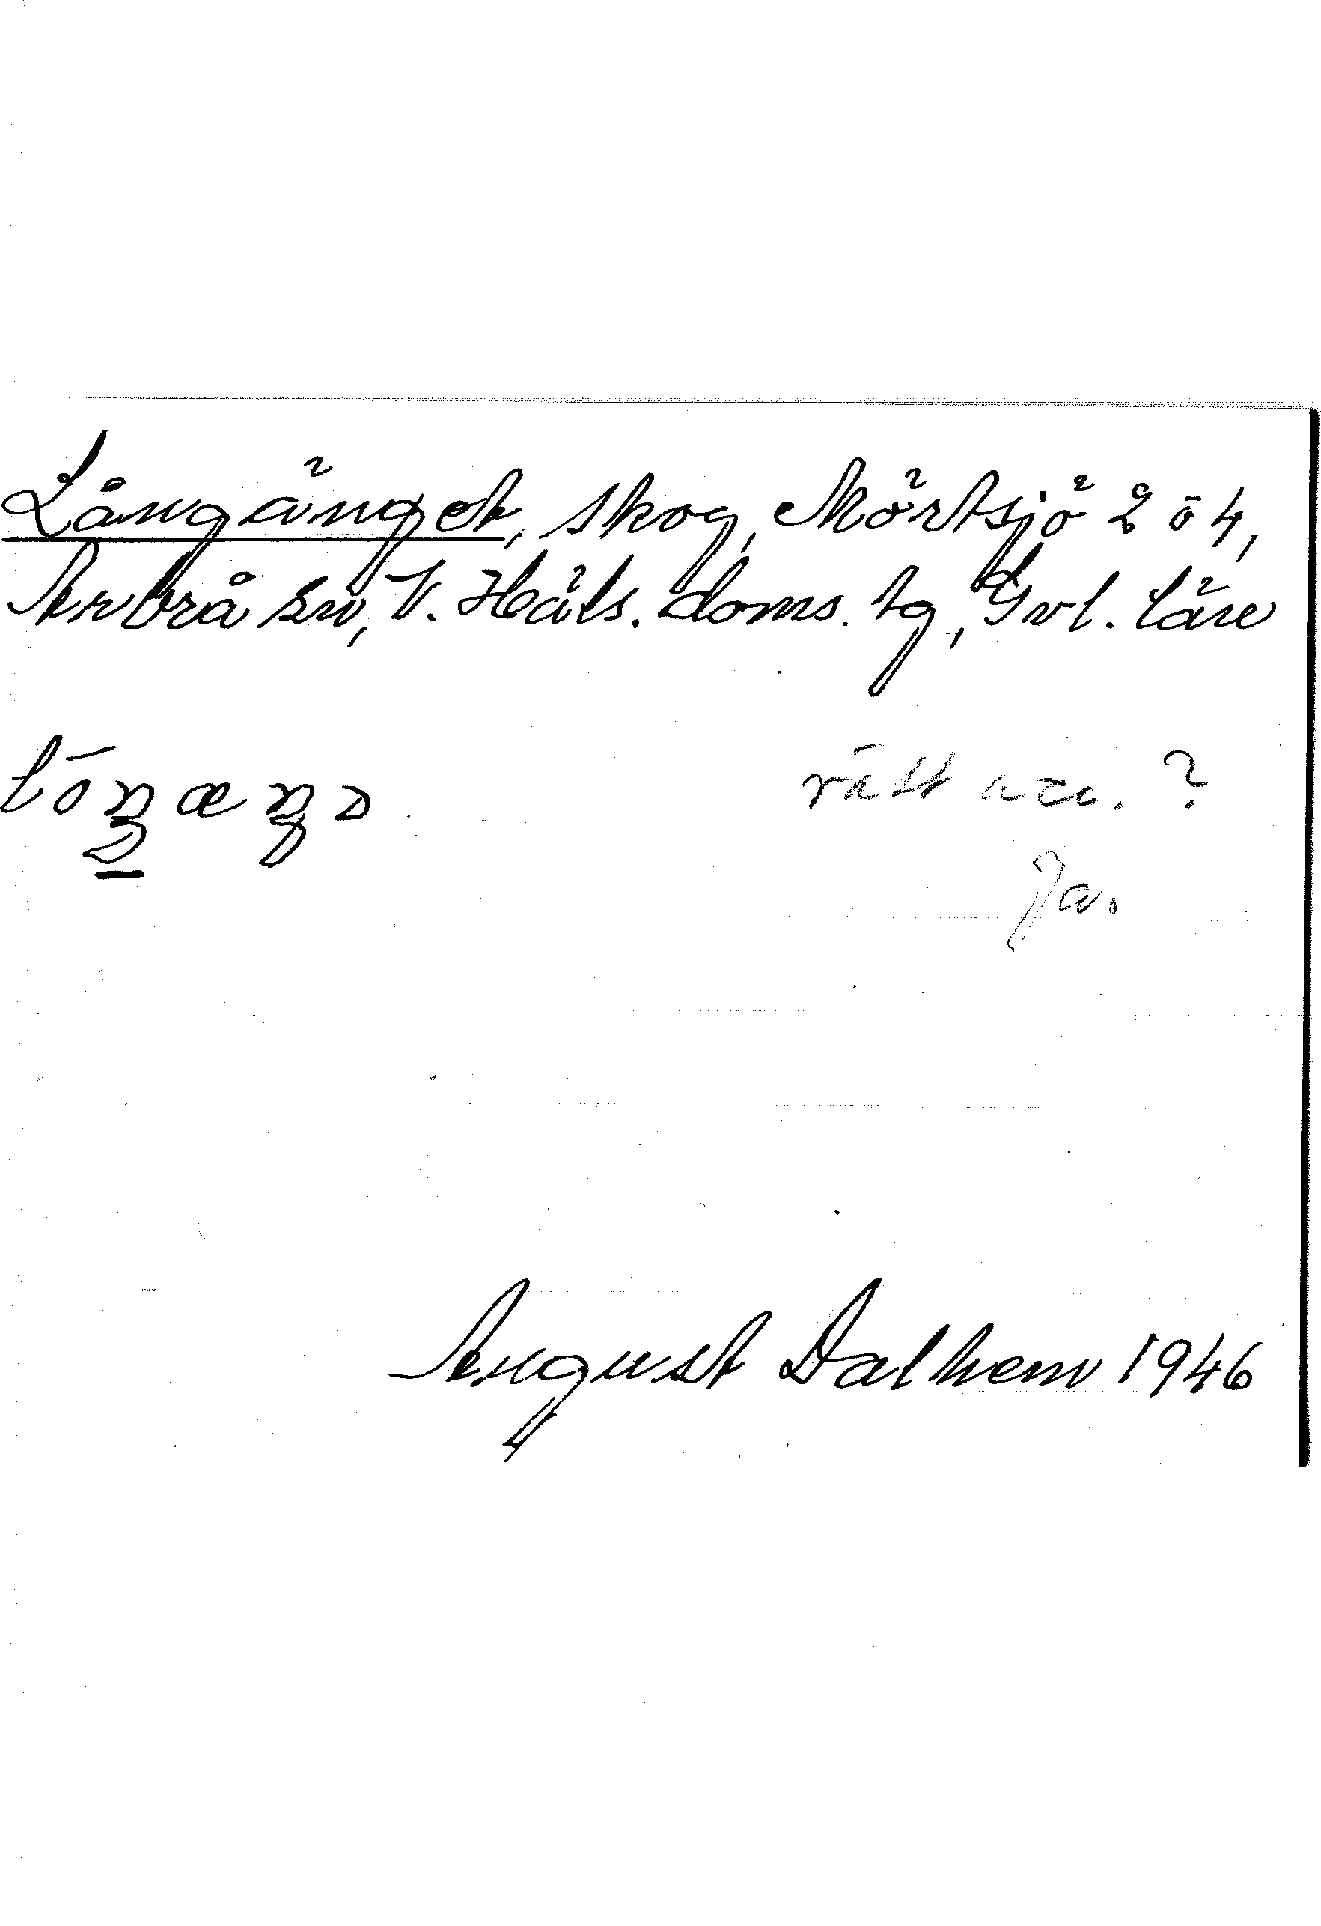 Långänget, skog, Mörtsjö 2 ö 4,
Arbrå sn, V. Häls. doms. tg, Gvl. län
rätt acc. ?
Ja.
August Dalhem 1946